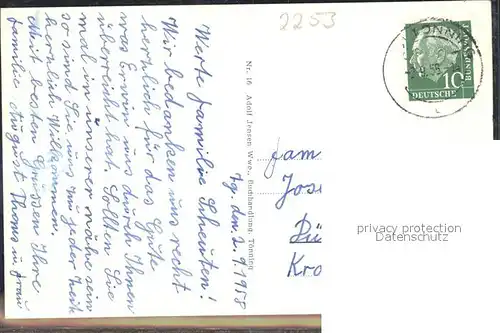 2253
TÖNNING
DEUTSCHE
BUNDESPOST
10
Werte Familie Scheuten!
Wir bedanken uns recht
herzlich für das Gute
was Erwin uns durch Ihnen
überreicht hat. Sollten Sie
mal in unserer nähe sein
so sind Sie uns zu jeder Zeit
herzlich Willkommen.
Mit besten Grüssen Ihre
Familie August Thoms u. Frau
Tg. den 2.9.1958
Nr. 16 Adolf Jensen Wwe., Buchhandlung, Tönning
Fam
Jose
Dü
Kro
privacy protection
Datenschutz